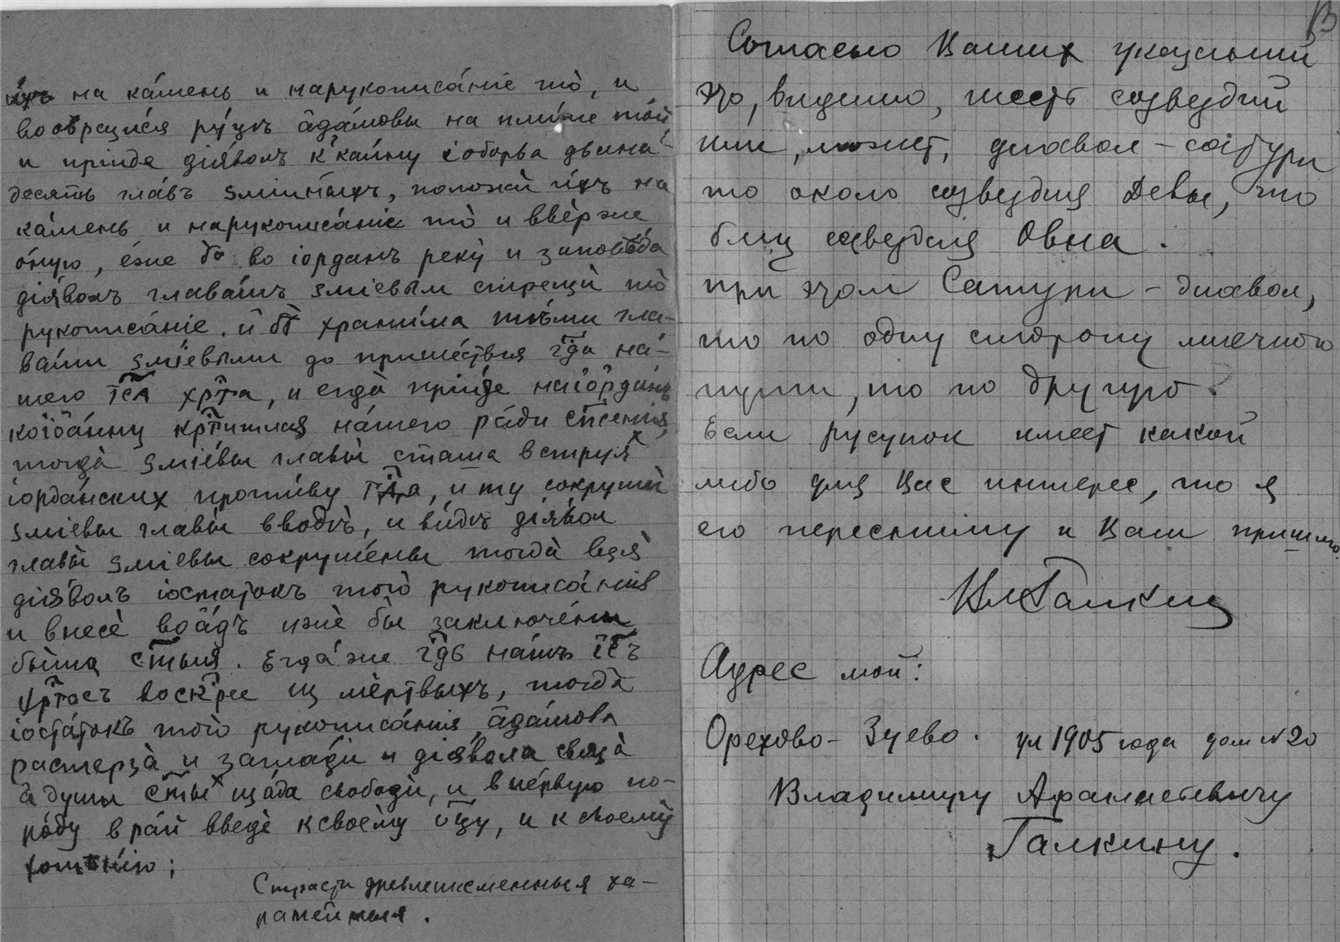 их на ка́мень и нарукописа́нїе то̀, и
вообразися ру́цѣ ада́мовы на плите той
и прїиде дїя́волъ к ка́ину и оборва двана-
десять гла́въ змїиныхъ, положи и́хъ на
ка́мень и нарукописа́нїе то̀ и вве́рже
о́ную, е́же бо во їорданъ реку̀ и заповѣда
дїя́волъ глава́мъ змїевы́м стрещи то̀
рукописа́нїе. и бѣ храни́ма тѣ́ми гла-
ва́ми змїевыми до прише́ствия гд҃а на́-
шего іс҃а хрт҃а, и егда̀ прїи́де на їо́рданъ
ко їоа́нну крт҃итися на́шего ра́ди сп҃сения,
тогда̀ змїе́вы главы̀ сташа в струя́х
їорда́нских проти́ву гд҃а, и ту сокрушѝ
змїевы главы̀ в водѣ̀, и ви́дѣ дїя́вол
главы̀ змїевы сокруше́ны тогда̀ взя̀
дїя́волъ їостатокъ того̀ рукописа́ния
и внесѐ во а́дъ иже бы заключе́ны
бы́ша ст҃ыя. Егда́же гд҃ь на́шъ іс҃ъ
хр҃тосъ воскр҃се из ме́ртвыхъ, тогда̀
їоста́токъ того̀ рукописа́ния ада́мова
растерза̀ и загла́ди и дїя́вола связа̀
а души ст҃ых из а́да свободѝ, и в пе́рвую по-
ро́ду в ра́й введѐ к своему ѻц҃у, и к своему
хоте́нїю;
Страсти древлеписменныя ха-
ратейныя.
Согласно Ваших указаний
это, видимо, шесть созвездий
или, может, диавол – сатурн
то около созвездия Девы, то
близ созвездия Овна.
при этом Сатурн – диавол,
то по одну сторону млечного
пути, то по другую.
Если рисунок имеет какой
либо для Вас интерес, то я
его пересниму и Вам пришлю.
Вл Галкин
Адрес мой:
Орехово-Зуево. ул 1905 года дом № 20
Владимиру Афанасьевичу
Галкину.